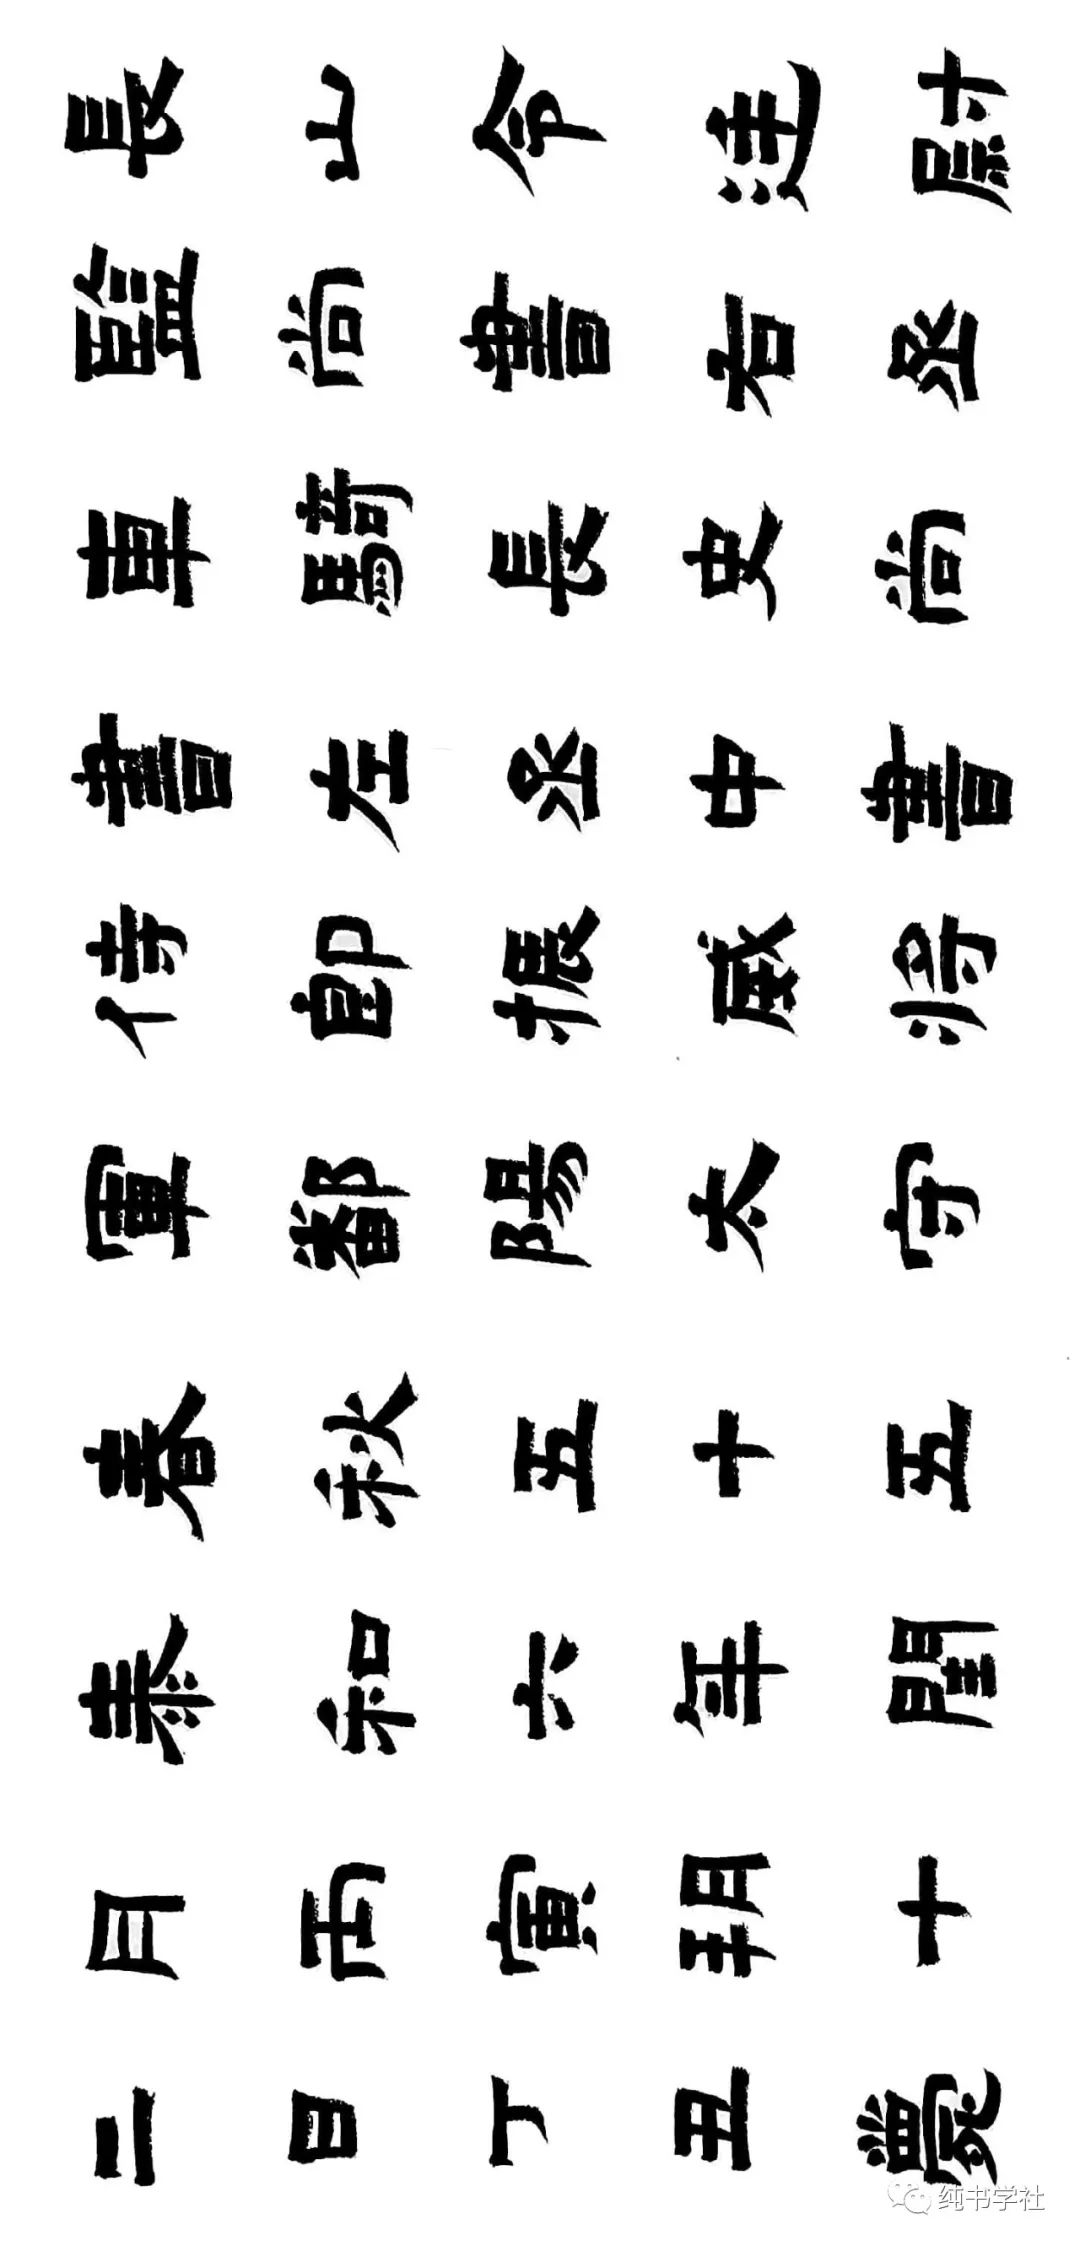 長山令廷尉
監尚書右丞
車騎長史尚
書左丞中書
侍郎振威將
軍鄱陽太守
春秋五十五
泰和六年閏
月丙寅朔十
二日丁丑薨
纯书学社